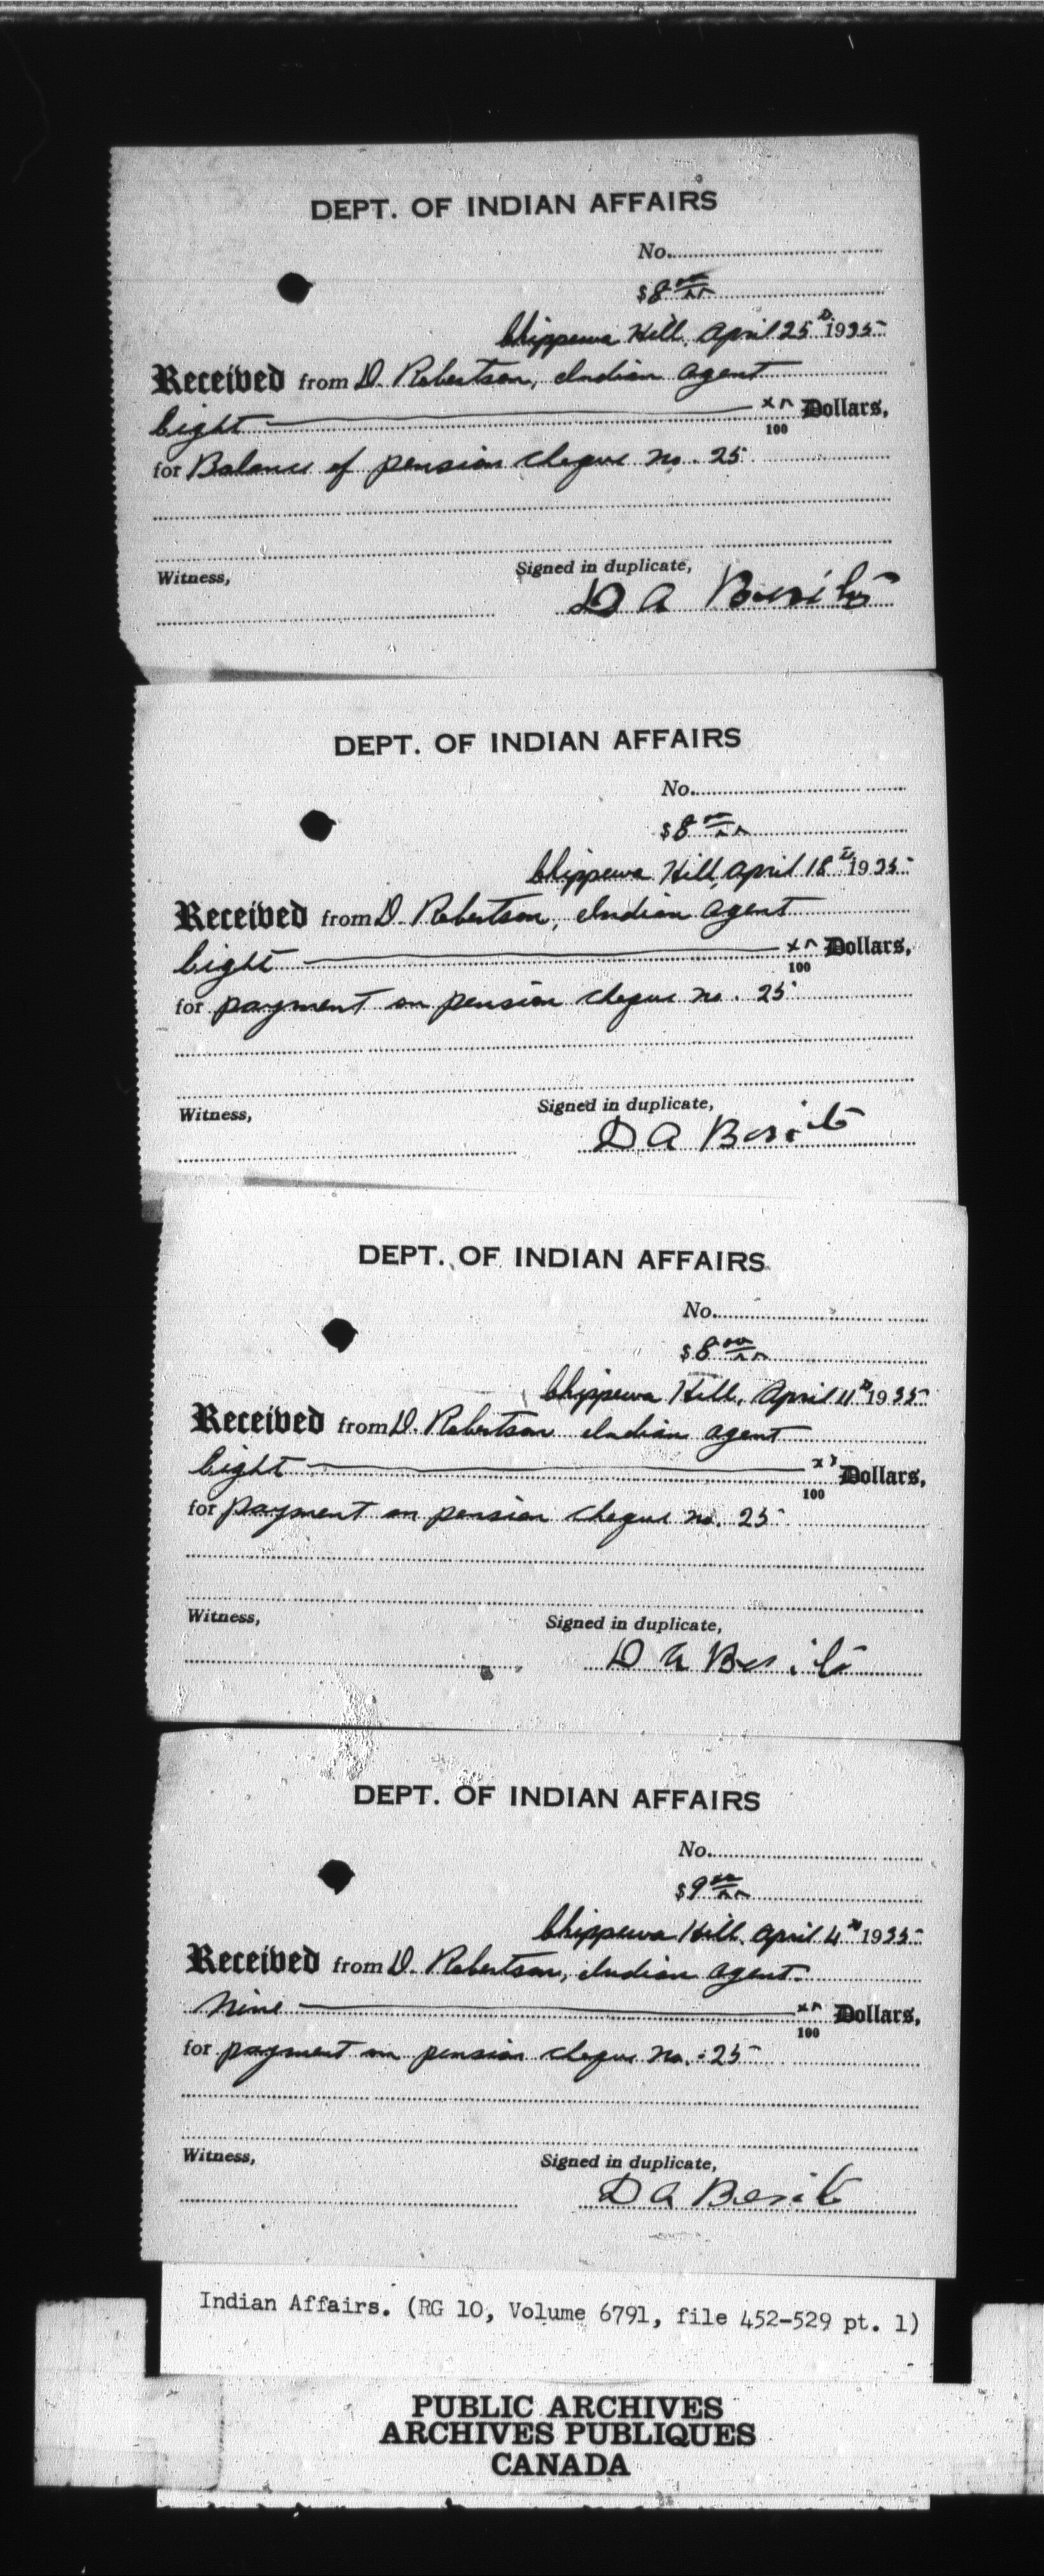 DEPT. OF INDIAN AFFAIRS
No.
$8 00/xx
Chippewa Hill, April 25th 1935
Received from D. Robertson, Indian Agent
Eight xx/100 Dollars,
for Balance of pension cheque no. 25
Witness,
Signed in duplicate,
D A
DEPT. OF INDIAN AFFAIRS
No.
$8 00/xx
Chippewa Hill, April 18th 1935
Received from D. Robertson, Indian Agent
Eight xx/100 Dollars,
for payment on pension cheque no. 25
Witness,
Signed in duplicate,
D A
DEPT. OF INDIAN AFFAIRS
No.
$8 00/xx
Chippewa Hill, April 11th 1935
Received from D. Robertson Indian Agent
Eight xx/100 Dollars,
for payment on pension cheque no. 25
Witness,
Signed in duplicate,
D A
DEPT. OF INDIAN AFFAIRS
No.
$9 00/xx
Chippewa Hill, April 4th 1935
Received from D. Robertson, Indian Agent.
Nine xx/100 Dollars,
for payment on pension cheque no. 25
Witness,
Signed in duplicate,
D A
Indian Affairs. (RG 10, Volume 6791, file 452-529 pt. 1)
PUBLIC ARCHIVES
ARCHIVES PUBLIQUES
CANADA